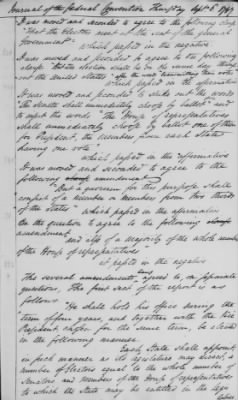 Journal of the federal Convention Thursday Sept. 6 1787
It was moved and seconded to agree to the following clause
"That the Electors meet at the seat of the general
Government."
which passed in the negative
It was moved and seconded to agree to the following
clause
the United States" after the words
which passed in the affirmative
It was moved and seconded to strike out the words
"The Senate shall immediately choose by ballot" and
to insert the words "The House of representatives
shall immediately choose by ballot one of them
for President, the Members from each State
having one vote"
which passed in the affirmative
It was moved and seconded to agree to the
following amendment
"But a quorum for this purpose shall
consist of a member or members from two thirds
of the States"
which passed in the affirmative
On the question to agree to the following
amendment
"and also of a majority of the whole number
of the House of representatives"
it passed in the negative
The several amendments being agreed to, on separate
questions, The first sect. of the report is as
follows
"He shall hold his office during the
term of four years, and together with the vice
President chosen for the same term, be elected
in the following manner.
Each State shall appoint
in such manner as its legislature may direct, a
number of Electors equal to the whole number of
Senators and members of the House of representatives
to which the State may be entitled in the legis